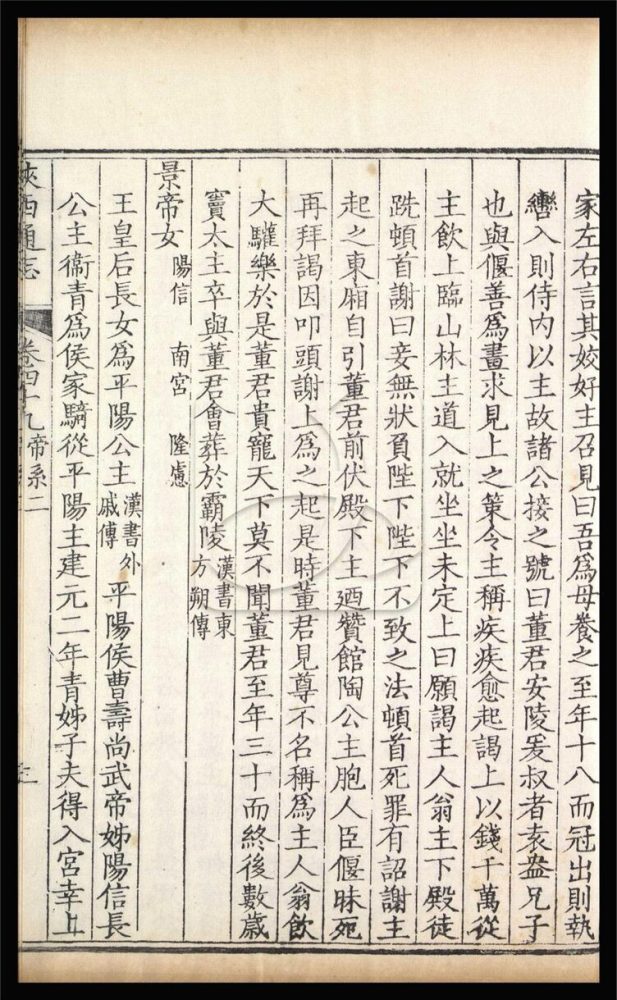 家左右言其姣好主召見曰吾爲母養之至年十八而冠出則執
轡入則侍内以主故諸公接之號曰董君安陵爰叔者袁盎兄子
也與偃善爲畫求見上之策令主稱疾疾愈起謁上以錢千萬從
主飲上臨山林主道入就坐坐未定上曰願謁主人翁主下殿徒
跣頓首謝曰妾無狀負陛下陛下不致之法頓首死罪有詔謝主
起之東廂自引董君前伏殿下主廼贊館陶公主胞人臣偃昧死
再拜謁因叩頭謝上爲之起是時董君見尊不名稱爲主人翁飲
大驩樂於是董君貴寵天下莫不聞董君至年三十而終後數歲
竇太主卒與董君會葬於霸陵漢書東方朔傳
景帝女 陽信 南宮 隆慮
王皇后長女爲平陽公主漢書外戚傳 平陽侯曹壽尚武帝姊陽信長
公主衞青爲侯家騎從平陽主建元二年青姊子夫得入宮幸上
陜西通志 卷四十九 帝系二